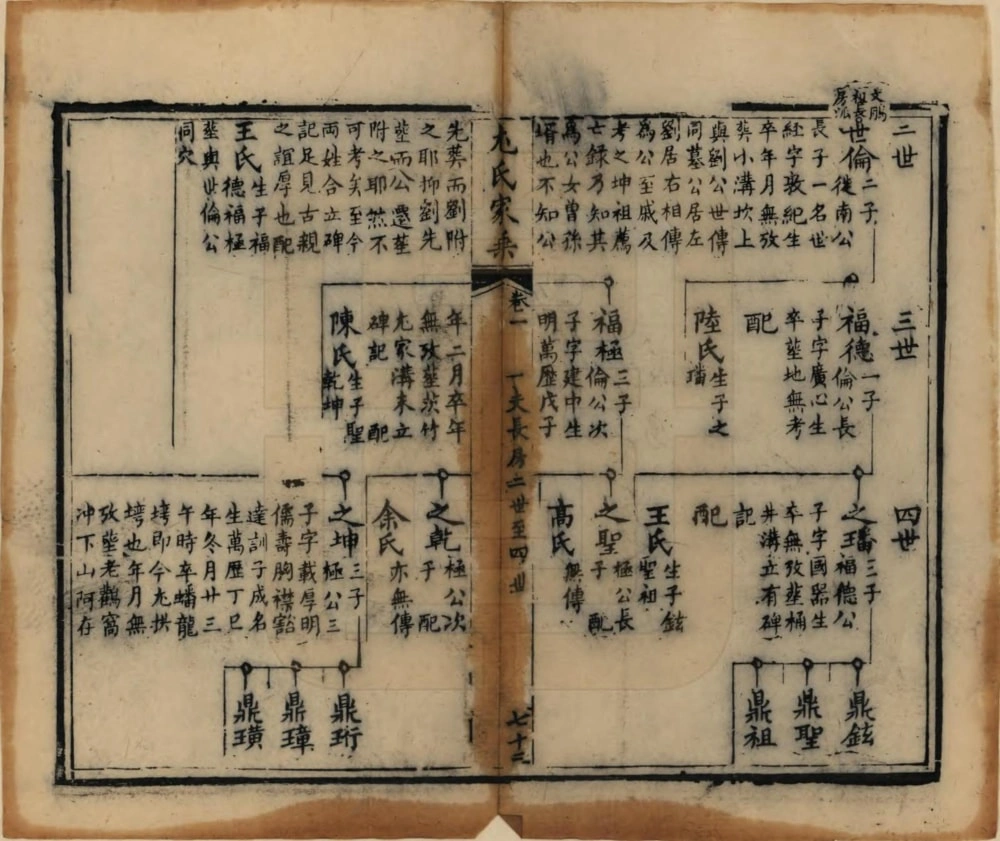 文鵬
祖長
房派
二世
世倫二子
從南公
長子一名世
經字敎紀生
卒年月無攷
葬小溝坎上
與劉公世傳
同墓公居左
劉居右相傳
為公至戚及
考之坤祖薦
亡錄乃知其
為公女曾孫
壻也不知公
先葬而劉附
之耶抑劉先
塟而公遷塟
附之耶然不
可考矣至今
兩姓合立碑
記足見古親
之誼厚也配
王氏生子福
德福極
塟與世倫公
同穴
三世
福德一子
倫公長
子字廣心生
卒塟地無考
配
陸氏生子之
璠
福極三子
倫公次
子字建中生
明萬歷戊子
年二月卒年
無攷塟茨竹
尢家溝未立
碑記配
陳氏生子聖
乾坤
四世
之璠三子
福德公
子字國器生
卒無攷塟桶
井溝立有碑
記配
王氏生子鉉
聖祖
之聖極公長
子配
高氏無傳
之乾極公次
子配
余氏亦無傳
之坤三子
極公三
子字載厚明
儒壽胸襟豁
達訓子成名
生萬歷丁巳
年冬月廿三
午時卒蟠龍
塆即今尢拱
塆也年月無
攷塟老鸛窩
冲下山阿存
鼎鉉
鼎聖
鼎祖
鼎珩
鼎璋
鼎璜
尢氏家乘
卷一
一大長房二世至四世
七十三